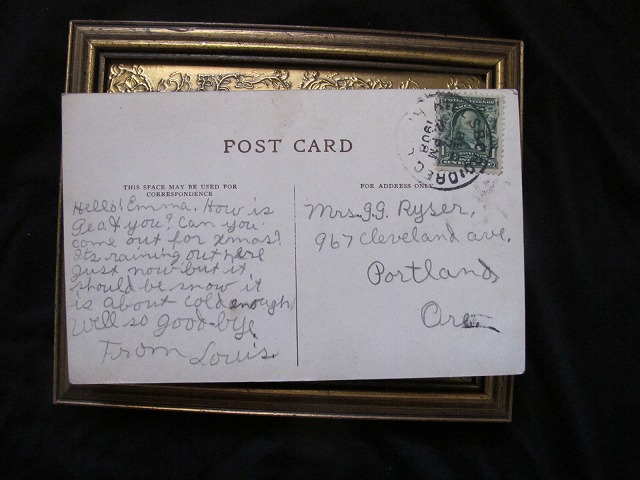 POST CARD
THIS SPACE MAY BE USED FOR
CORRESPONDENCE
Hello! Emma. How is
Geo. & you? Can you
come out for xmas?
Its raining out here
just now but it
should be snow it
is about cold enough
Well so good-bye
From Louis.
FOR ADDRESS ONLY
Mrs. G.G. Ryser,
967 Cleveland ave,
Portland
Ore.
1908